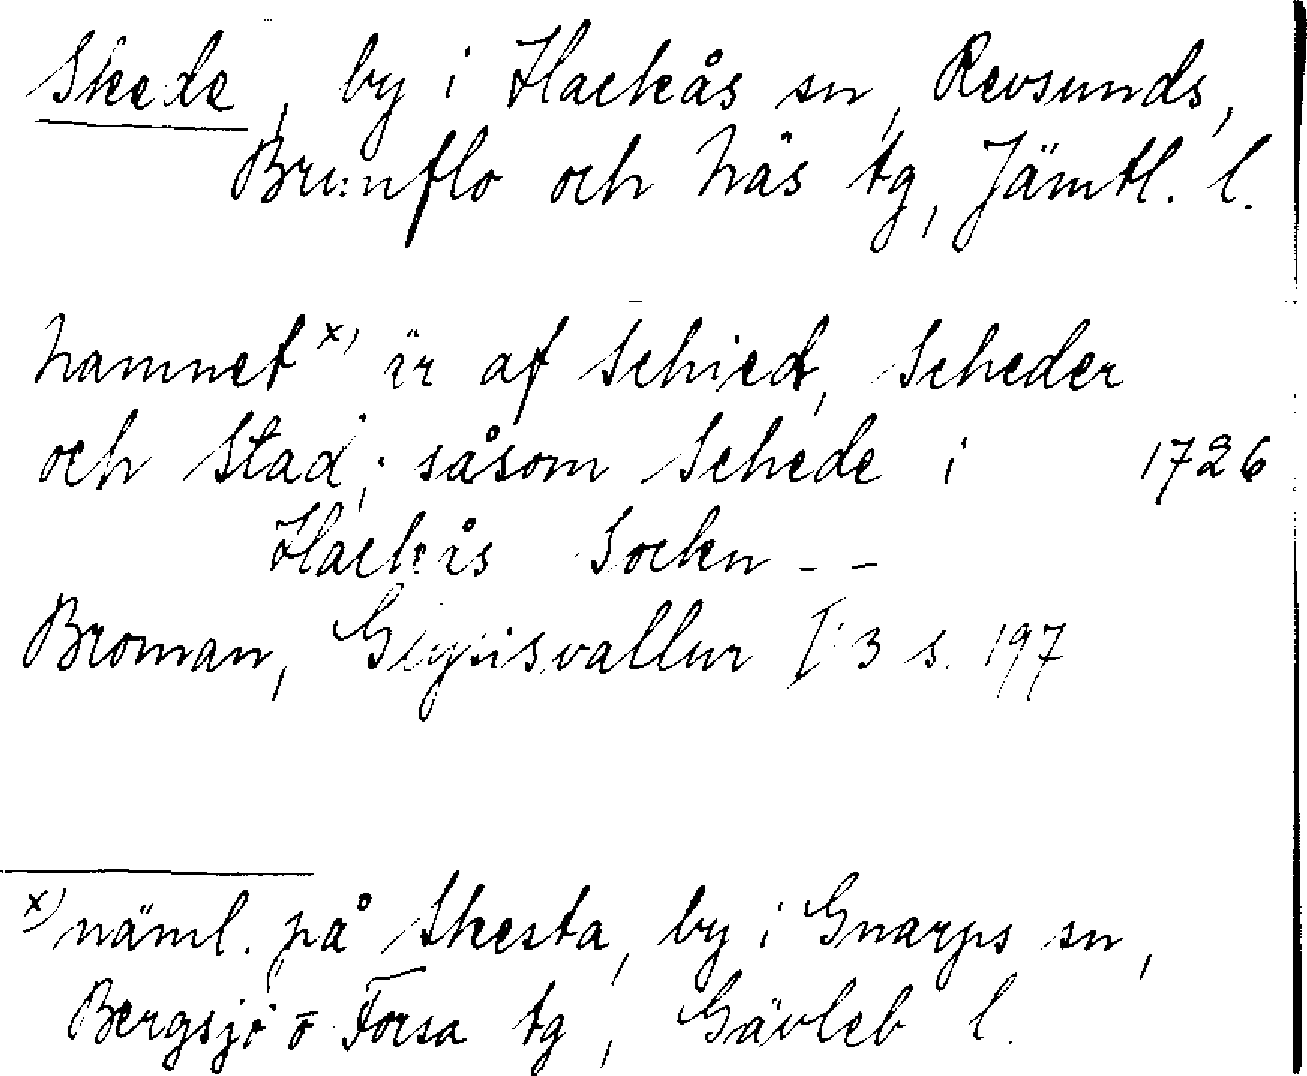 Skede, by i Hackås sn, Revsunds,
Brunflo och Näs tg, Jämtl. l.
Namnet x) är af Schied, Scheder
och Stad; såsom Schede i 1726
Hackås Sockn - -
Broman, Glysisvallur I:3 s. 197
x) näml. på Skesta, by i Gnarps sn,
Bergsjö o Forsa tg, Gävleb l.